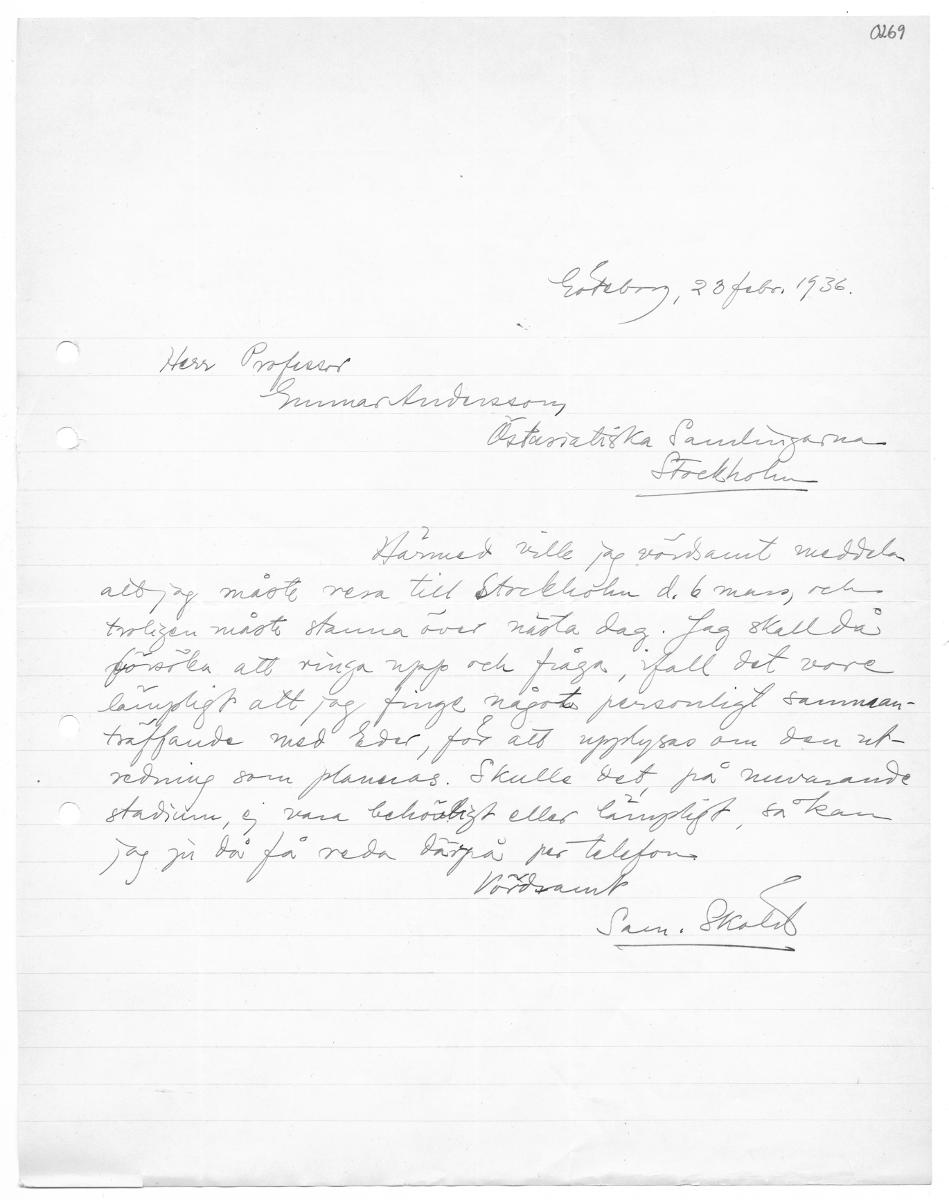 0269
Göteborg, 23 febr. 1936.
Herr Professor
Gunnar Andersson,
Östasiatiska Samlingarna
Stockholm
Härmed ville jag vördsamt meddela
att jag måste resa till Stockholm d. 6 mars, och
troligen måste stanna över nästa dag. Jag skall då
försöka att ringa upp och fråga, ifall det vore
lämpligt att jag finge något personligt samman-
träffande med Eder, för att upplysas om den ut-
redning som planeras. Skulle det, på nuvarande
stadium, ej vara behövligt eller lämpligt, så kan
jag ju då få reda därpå per telefon
Vördsamt
Sam. Sköld